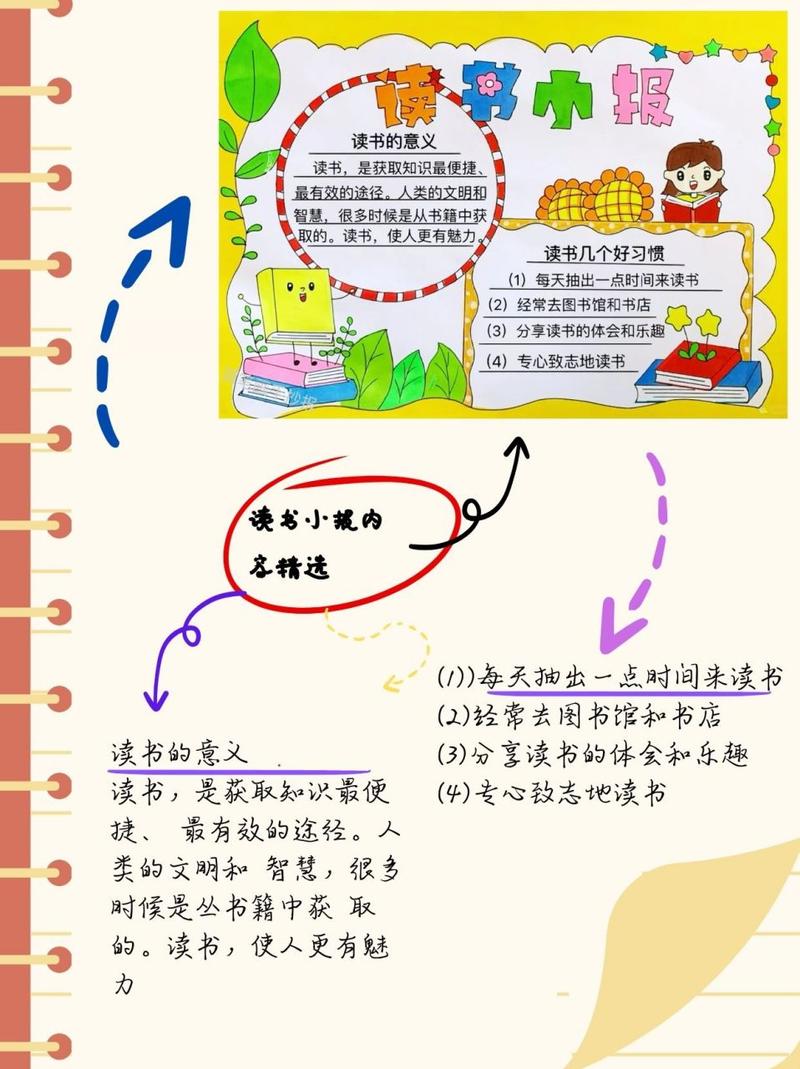 读书小报
读书的意义
读书，是获取知识最便捷、
最有效的途径。人类的文明和
智慧，很多时候是从书籍中获
取的。读书，使人更有魅力。
读书几个好习惯
(1) 每天抽出一点时间来读书
(2) 经常去图书馆和书店
(3) 分享读书的体会和乐趣
(4) 专心致志地读书
读书小报内
容精选
(1))每天抽出一点时间来读书
(2)经常去图书馆和书店
(3)分享读书的体会和乐趣
(4)专心致志地读书
读书的意义
读书，是获取知识最便
捷、 最有效的途经。人
类的文明和 智慧，很多
时候是丛书籍中获 取
的。读书，使人更有魅
力